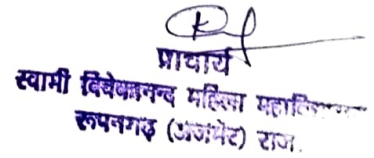 प्राचार्य
स्वामी विवेकानन्द महिला
रूपनगढ़ (अजमेर) राज.